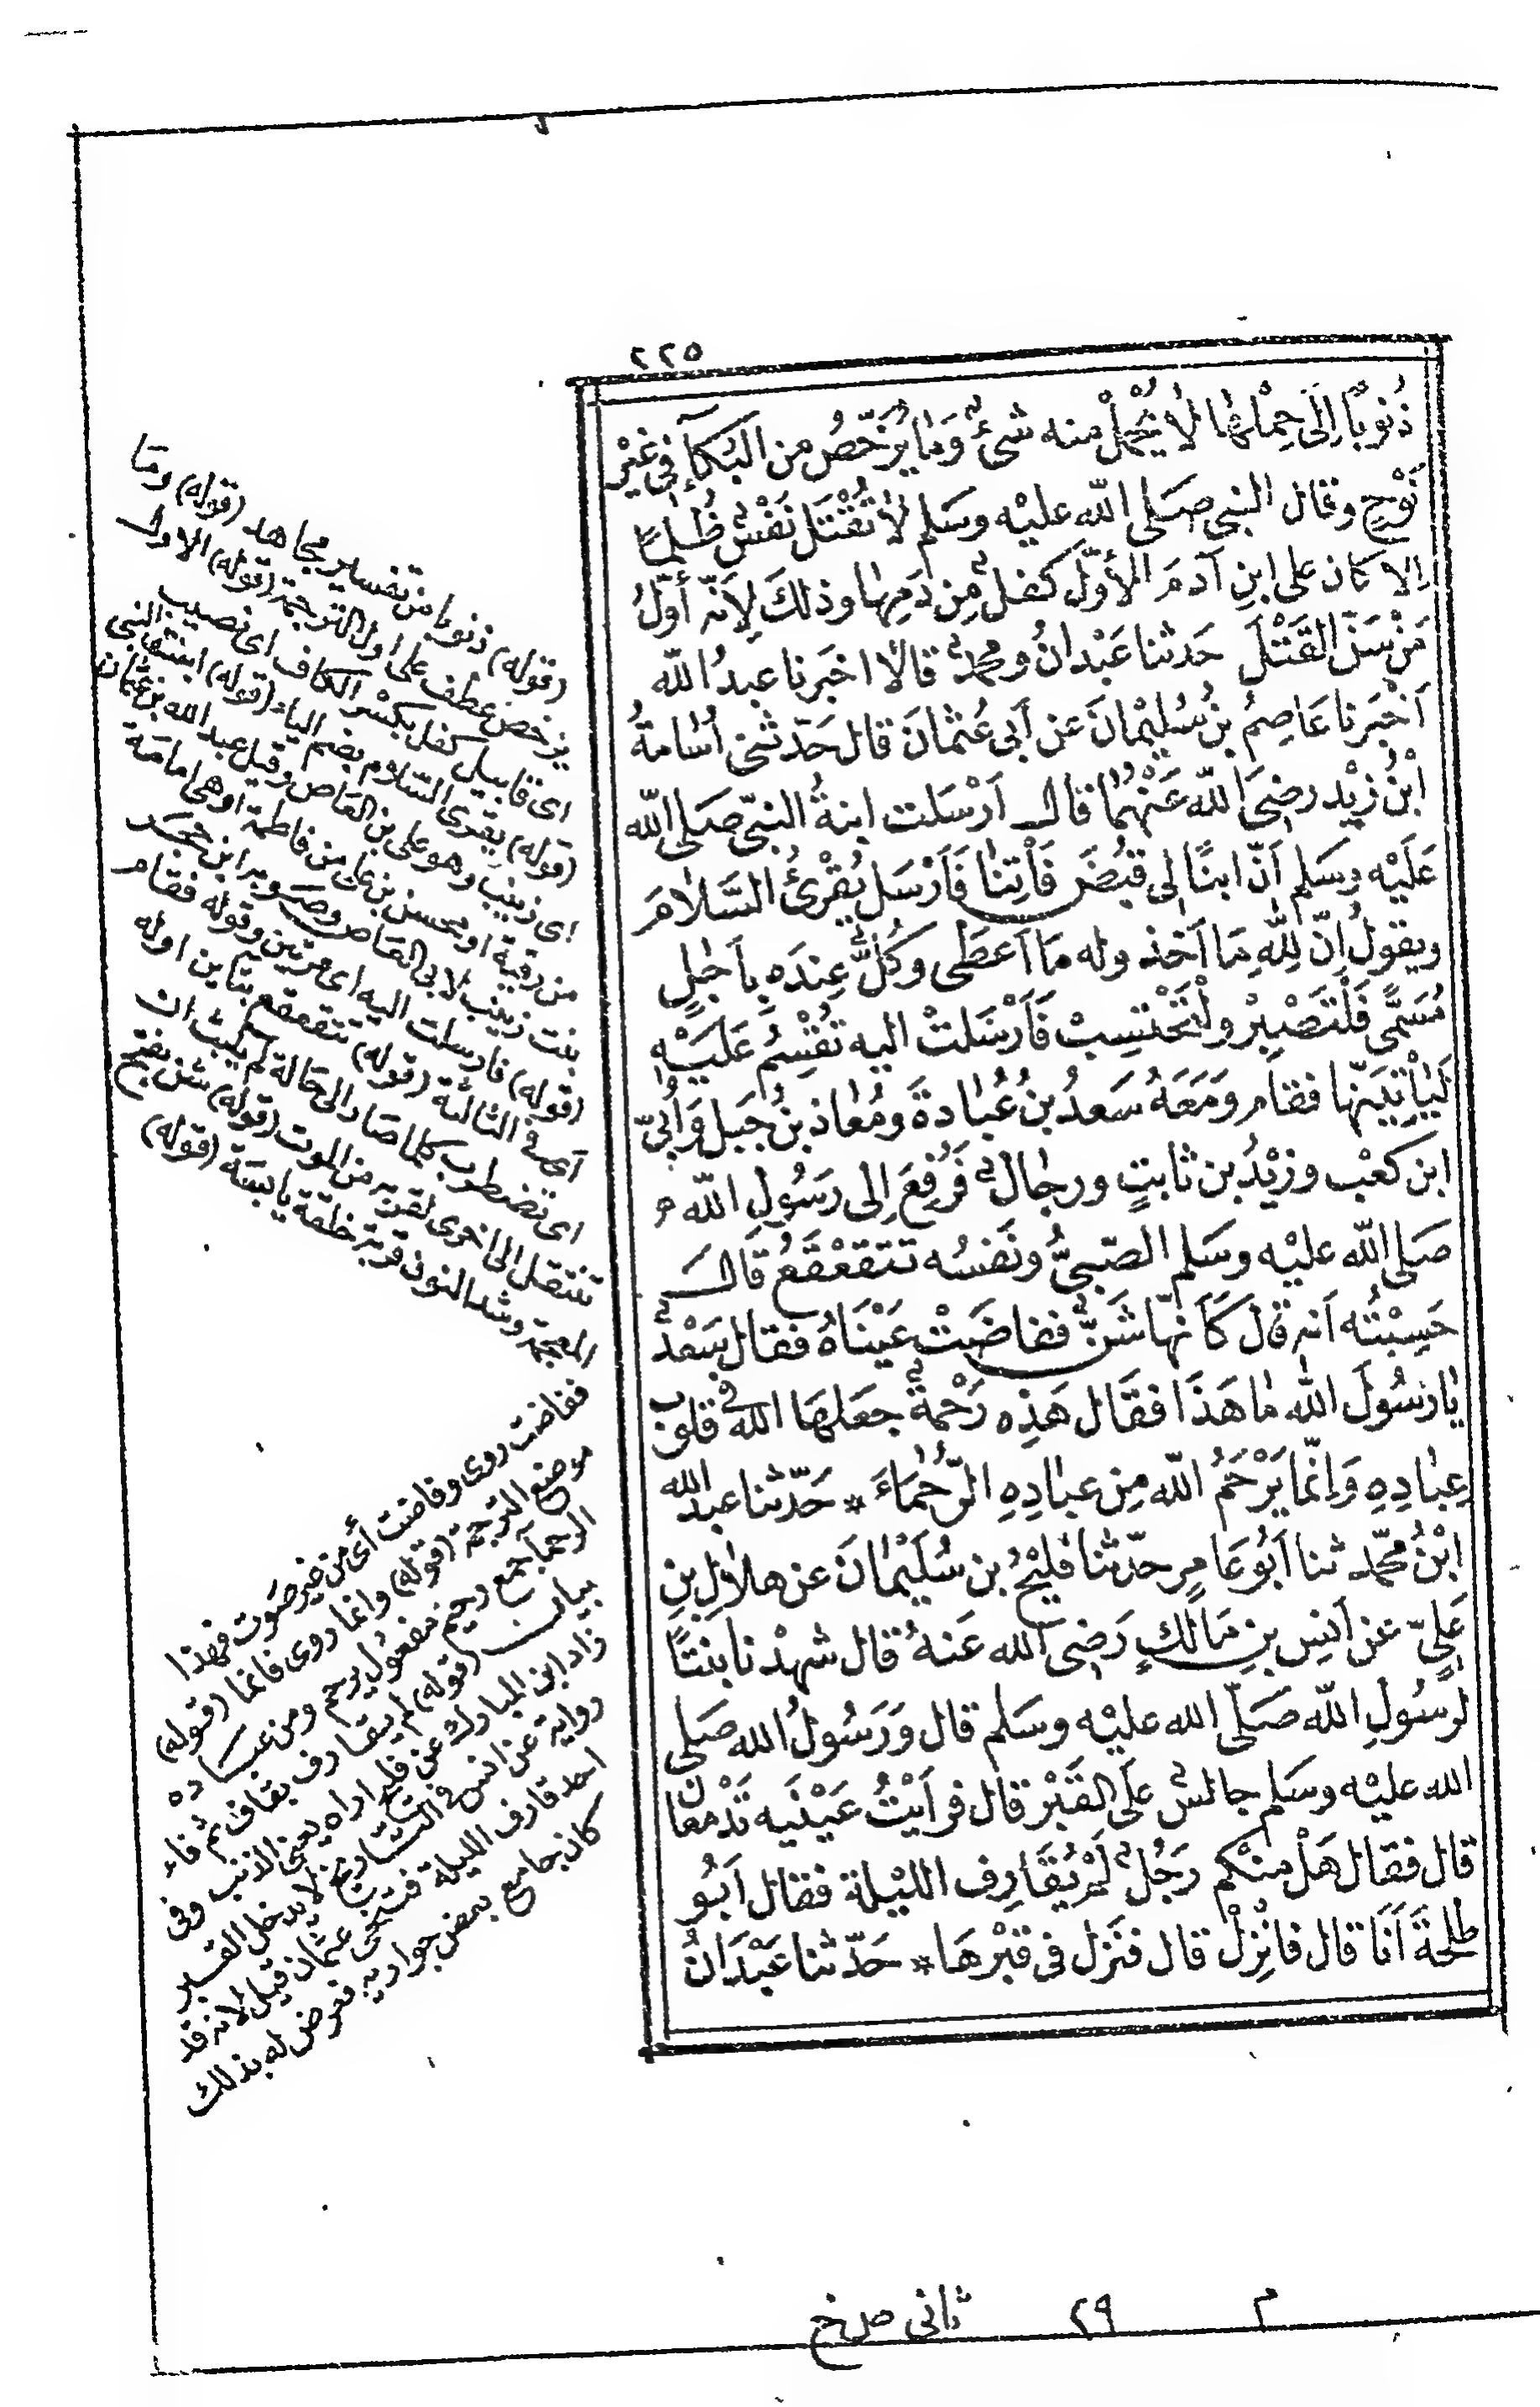 ٢٢٥
ذُنُوبًا اِلَى حِمْلِهَا لَا يُحْمَلْ منه شئٌ وَمَا يُرَخَّصُ من البُكَآءِ فى غَيْرِ
نَوْحٍ وقال النبى صَلى الله عليْه وسَلم لا تُقْتَلُ نَفْسٌ ظُلمًا
اِلا كان على ابنِ آدمَ الأوّل كفلٌ مِن دَمِهَا وذلكَ لِأنّه أوّلُ
مَنْ سَنّ القَتْلَ حَدثنا عَبْدانُ ومحمدٌ قالا اخبَرنا عبدُ الله
أخْبَرنا عَاصِمُ بنُ سُليْمانَ عن أبى عُثمانَ قال حَدّثنى اُسَامةُ
ابْنُ زيْد رضىَ الله عَنْهُمَا قال اَرْسَلت ابنةُ النبىّ صَلى الله
عَلَيْه وسَلم أنّ ابنًا لى قبُضَ فَأْتِنَا فَأَرْسَل يُقْرِئُ السَّلامَ
ويقولُ اِنّ لِلّٰهِ مَا اَخَذ وله مَا اَعطَى وكُلٌّ عِندَه بِاَجَلٍ
مُسَمًّى فَلْتَصْبِرْ ولْتَحْتسِبْ فَاَرْسَلتْ اليه تُقْسِمُ عَلَيْهِ
لَيَأْتِيَنّها فقام وَمَعَهُ سَعدُ بنُ عُبَادةَ ومُعاذ بنُ جَبَل وَاُبىّ
ابن كعْب وزيْدُ بن ثابتٍ ورجالٌ فَرُفِعَ اِلى رَسُولِ الله
صَلى الله عليْه وسَلم الصّبىُّ ونَفسُه تتقَعْقَعُ قال
حَسِبْتُه اَنه قال كَاَنهّا شَنٌّ ففاضَتْ عَيْنَاهُ فقال سَعْدٌ
يا رَسُولَ الله ما هَذَا فقَال هَذِه رَحْمةٌ جعَلهَا الله فى قلوب
عِبَادِهِ وَاِنّما يَرْحَمُ الله مِن عبَادِهِ الرّحُمَاءَ * حَدّثنا عبد الله
ابْنُ محمّد ثنا اَبُو عَامِرٍ حدّثنا فليْحُ بن سُلَيْمَانَ عن هلالِ بنِ
عَلىّ عن اَنسِ بنِ مَالكٍ رَضى الله عَنهُ قال شهدْنا بنتًا
لرَسُولِ الله صَلّى الله عليْه وسَلم قال وَرَسُولُ الله صَلى
الله عليْه وسَلم جالسٌ عَلى القَبْر قال فرَاَيْتُ عَيْنَيه تَدْمعَان
قال فقال هَلْ منكم رَجُلٌ لَمْ يُقَارِف الليْلة فقال اَبُو
طلحَةَ اَنَا قال فانِزلْ قال فنَزل فى قبْرهَا * حَدّثنا عَبْدَانُ
(قوله) ذنوبا من تفسير مجاهد (قوله) وما
يرخص عطف على اول الترجمة (قوله) الاول
اى قابيل كفل بكسر الكاف اى نصيب
(قوله) يقرى السلام بضم الياء (قوله) ابنة النبى
اى زينب وهو على بن العاص وقيل عبد الله بن عثمان
من رقية او محسن بن على من فاطمة او هى امامة
بنت زينب لابى العاص وصوبه ابن حجر
(قوله) فارسلت اليه اى مرتين وقوله فقام
اى فى الثالثة (قوله) تتقعقع بتاين اوله
اى تضطرب كلما صار الى حالة لم يلبث ان
تنتقل الى اخرى لقربه من الموت (قوله) شن بفتح
المعجمة وشد النون قربة خلقة يابسة (قوله)
ففاضت روى وفاضت أى من غير صوت فهذا
موضع الترجمة (قوله) وانما روى فانما (قوله)
الرحما جمع رحيم مفعول يرحم ومن عباده
بيان (قوله) لم يقارف بقاف ثم فاء
زاد ابن المبارك عن فليح اراه يعنى الذنب وفى
رواية عن انس فى التاريخ لا يدخل القبر
احد قارف الليلة فتنحى عثمان قيل لانه قد
كان جامع بعض جواريه فعرض له بذلك
م ٢٩ ثانى ص خ